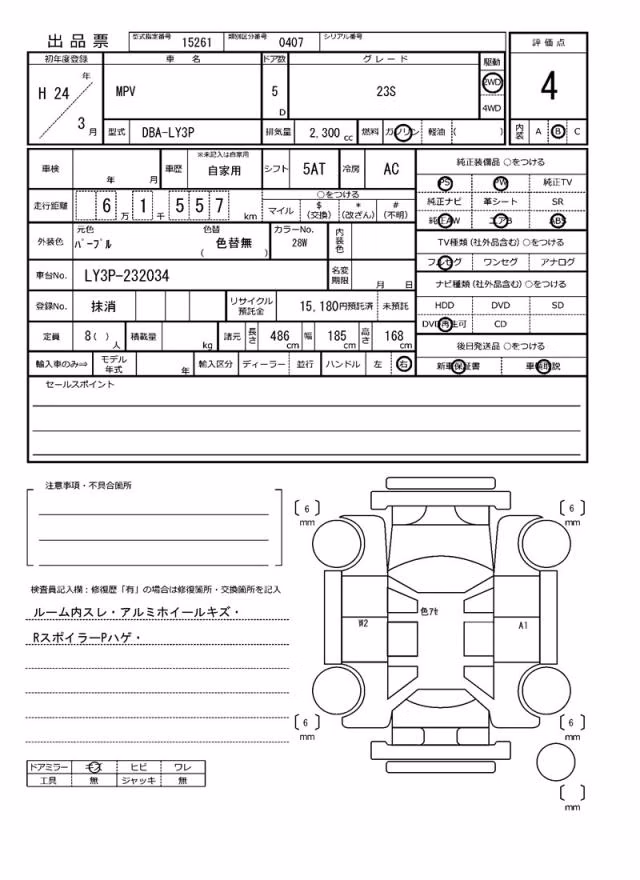 出品票 型式指定番号 15261 類別区分番号 0407 シリアル番号
初年度登録 車名 ドア数 グレード 駆動 評価点
H 24 年 3 月 MPV 5 D 23S 2WD 4WD 4
型式 DBA-LY3P 排気量 2,300 cc 燃料 ガソリン 軽油 ( ) 内装 A B C
車検 年 月 車歴 ※未記入は自家用 自家用 シフト 5AT 冷房 AC
走行距離 6 万 1 千 5 5 7 km ○をつける
マイル $ (交換) * (改ざん) # (不明)
外装色 元色 パープル 色替 色替無 ( ) カラーNo. 28W 内装色
車台No. LY3P-232034 名変期限 月 日
登録No. 抹消 リサイクル預託金 15,180円預託済 未預託
定員 8( ) 人 積載量 kg 諸元 長さ 486 cm 幅 185 cm 高さ 168 cm
輸入車のみ⇒ モデル年式 年 輸入区分 ディーラー 並行 ハンドル 左 右
純正装備品 ○をつける
PS PW 純正TV
純正ナビ 革シート SR
純正AW エアB ABS
TV種類(社外品含む) ○をつける
フルセグ ワンセグ アナログ
ナビ種類(社外品含む) ○をつける
HDD DVD SD
DVD再生可 CD
後日発送品 ○をつける
新車保証書 車輌取説
セールスポイント
注意事項・不具合箇所
検査員記入欄:修復歴「有」の場合は修復箇所・交換箇所を記入
ルーム内スレ・アルミホイールキズ・
RスポイラーPハゲ・
ドアミラー キズ ヒビ ワレ
工具 無 ジャッキ 無
[ 6 ] mm
[ 6 ] mm
W2 色アセ A1
[ 6 ] mm
[ 6 ] mm
[ ] mm